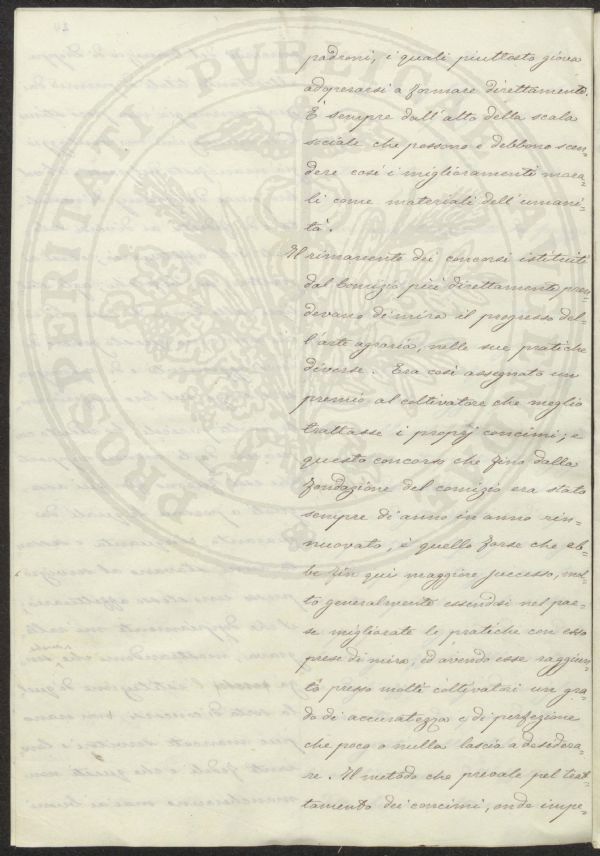 padroni, i quali piuttosto giova
adoperarsi a formare direttamente.
È sempre dall'alto della scala
sociale che possono e debbono scen-
dere così i miglioramenti mora-
li come materiali dell'umani-
tà.
Il rimanente dei concorsi istituiti
dal Comizio più direttamente pren-
devano di mira il progresso del-
l'arte agraria, nelle sue pratiche
diverse. Era così assegnato un
premio al coltivatore che meglio
trattasse i proprj concimi; e
questo concorso che fino dalla
fondazione del comizio era stato
sempre di anno in anno rin-
nuovato, è quello forse che eb-
be fin qui maggiore successo, mol-
to generalmente essendosi nel pae-
se migliorate le pratiche con esso
prese di mira, ed avendo esse raggiun-
to presso molti coltivatori un gra-
do di accuratezza e di perfezione
che poco o nulla lascia a desidera-
re. Il metodo che prevale pel trat-
tamento dei concimi, onde impe-
PROSPERITATI PVBLICAE AVGENDAE